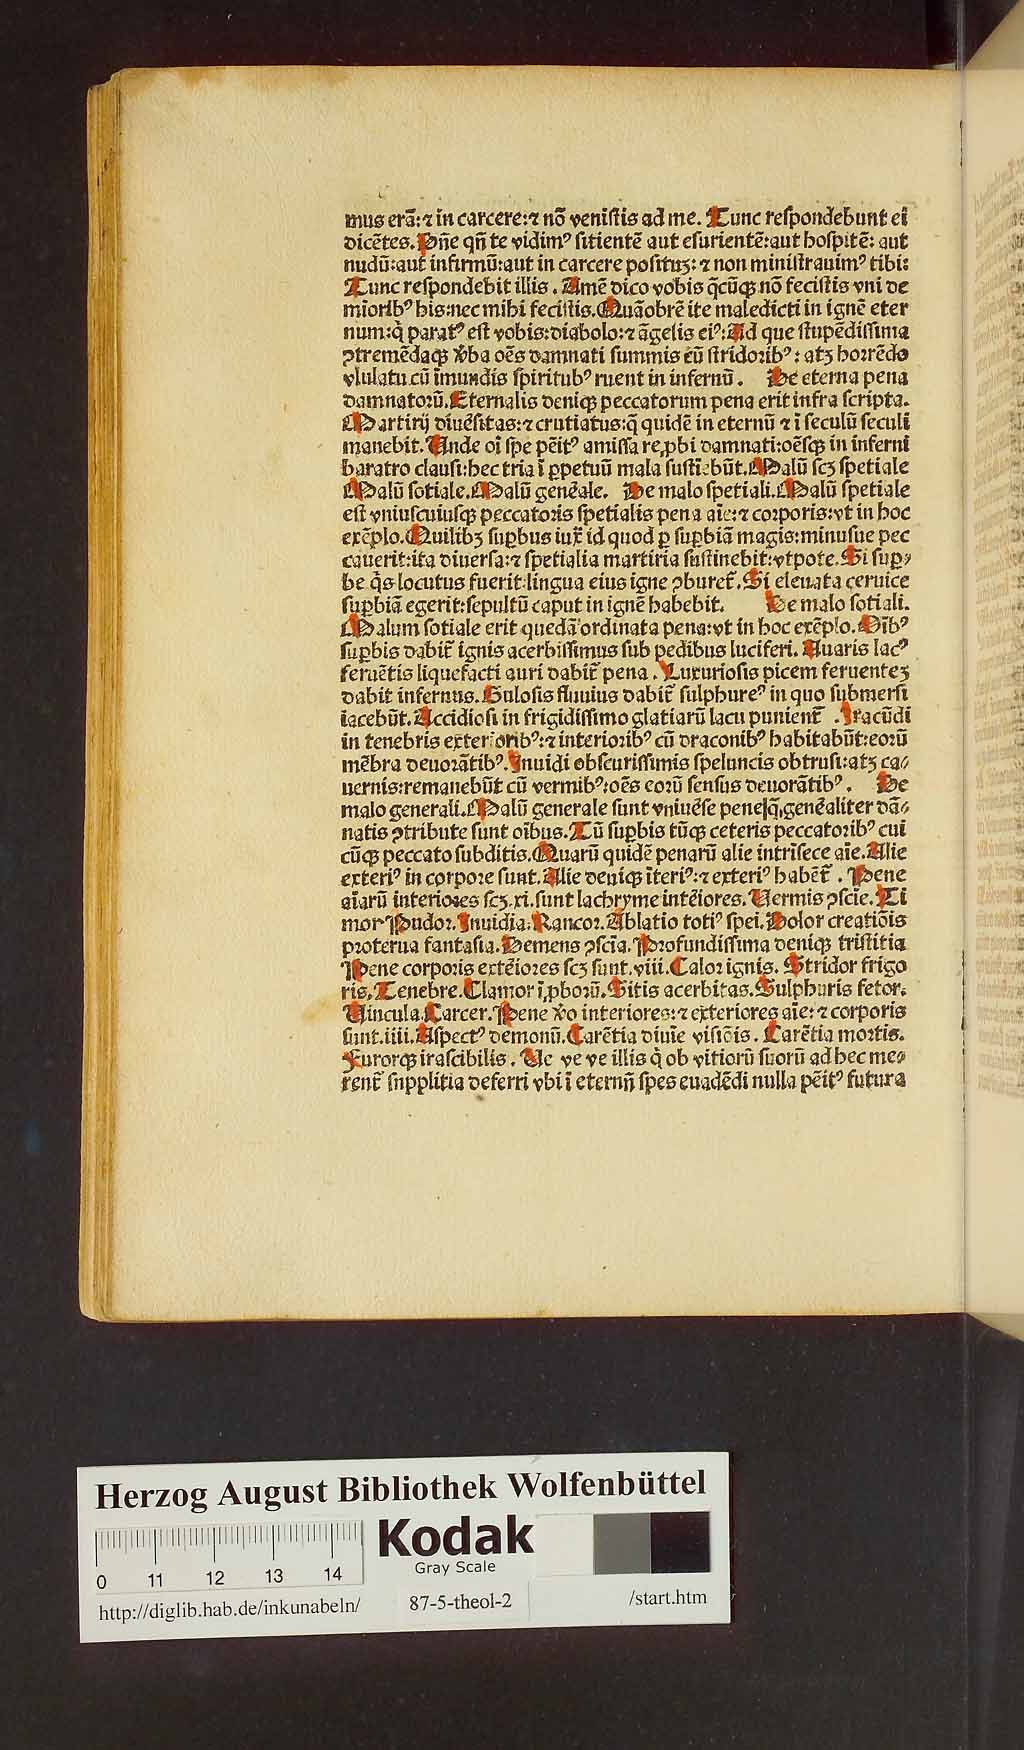 mus erã:⁊ in carcere:⁊ nõ veniſtis ad me. Tunc reſpondebunt ei
dicẽtes. Dñe qñ te vidimꝰ ſitientẽ aut eſurientẽ:aut hoſpitẽ: aut
nudũ:aut infirmũ:aut in carcere poſituꝫ: ⁊ non miniſtrauimꝰ tibi:
Tunc reſpondebit illis. Amẽ dico vobis q̃cũqꝫ nõ feciſtis vni de
mĩoribꝰ his:nec mihi feciſtis. Quãobrẽ ite maledicti in ignẽ eter
num:q̇ paratꝰ eſt vobis:diabolo:⁊ ãgelis eiꝰ: Ad que ſtupẽdiſſima
ꝯtremẽdaqꝫ v̾ba oẽs damnati ſummis cũ ſtridoribꝰ: atꝫ horrẽdo
vlulatu cũ ĩmundis ſpiritubꝰ ruent in infernũ. De eterna pena
damnatorũ. Eternalis deniqꝫ peccatorum pena erit infra ſcripta.
Martirij diuẽſitas:⁊ crutiatus:q̃ quidẽ in eternũ ⁊ ĩ ſeculũ ſeculi
manebit. Unde oĩ ſpe pẽitꝰ amiſſa reꝓbi damnati:oẽſqꝫ in inferni
baratro clauſi:hec tria ĩ ꝑpetuũ mala ſuſtiebũt. Malũ ſcꝫ ſpetiale
Malũ ſotiale. Malũ genẽale. De malo ſpetiali. Malũ ſpetiale
eſt vniuſcuiuſqꝫ peccatoris ſpetialis pena aĩe:⁊ corporis:vt in hoc
exẽplo. Quilibꝫ ſuꝑbus iux̃ id quod ꝑ ſuꝑbiã magis:minuſue pec
cauerit:ita diuerſa:⁊ ſpetialia martiria ſuſtinebit:vtpote. Si ſuꝑ⸗
be q̇s locutus fuerit:lingua eius igne ꝯburet̃. Si eleuata ceruice
ſuꝑbiã egerit:ſepultũ caput in ignẽ habebit. De malo ſotiali.
Malum ſotiale erit quedã ordinata pena:vt in hoc exẽplo. Oĩbꝰ
ſuꝑbis dabit̃ ignis acerbiſſimus ſub pedibus luciferi. Auaris lacꝰ
feruẽtis liquefacti auri dabit̃ pena. Luxurioſis picem feruenteꝫ
dabit infernus. Guloſis fluuius dabit̃ ſulphureꝰ in quo ſubmerſi
iacebũt. Accidioſi in frigidiſſimo glatiarũ lacu punient̃. Iracũdi
in tenebris exterioribꝰ:⁊ interioribꝰ cũ draconibꝰ habitabũt:eorũ
mẽbra deuorãtibꝰ. Inuidi obſcuriſſimis ſpeluncis obtruſi:atꝫ ca⸗
uernis:remanebũt cũ vermibꝰ:oẽs eorũ ſenſus deuorãtibꝰ. De
malo generali. Malũ generale ſunt vniuẽſe pene q̃ genẽaliter dã⸗
natis ꝯtribute ſunt oĩbus. Tũ ſuꝑbis tũqꝫ ceteris peccatoribꝰ cui
cũqꝫ peccato ſubditis. Quarũ quidẽ penarũ alie intrĩſece aĩe. Alie
exteriꝰ in corpore ſunt. Alie deniqꝫ ĩteriꝰ:⁊ exteriꝰ habẽt̃. Pene
aĩarũ interiores ſcꝫ.xi.ſunt lachryme intẽiores. Uermis ꝯſciẽ. Ti
mor Pudor. Inuidia. Rancor. Ablatio totiꝰ ſpei. Dolor creatiõis
proterua fantaſia. Demens ꝯſcia. Profundiſſima deniqꝫ triſtitia
Pene corporis extẽiores ſcꝫ ſunt.viii. Calor ignis. Stridor frigo
ris. Tenebre. Clamor ĩꝓborũ. Sitis acerbitas. Sulphuris fetor.
Uincula. Carcer. Pene v̾o interiores:⁊ exteriores aĩe:⁊ corporis
ſunt.iiii. Aſpectꝰ demonũ. Carẽtia diuĩe viſiõis. Carẽtia mortis.
Furorqꝫ iraſcibilis. Ve ve ve illis q̇ ob vitiorũ ſuorũ ad hec me⸗
rent̃ ſupplitia deferri vbi ĩ eternũ ſpes euadẽdi nulla pẽitꝰ futura
Herzog August Bibliothek Wolfenbüttel
Kodak
Gray Scale
0 11 12 13 14
http://diglib.hab.de/inkunabeln/ 87-5-theol-2 /start.htm